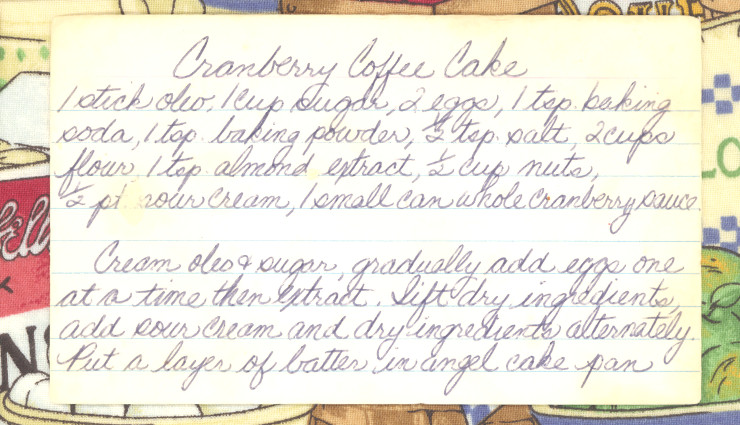 Cranberry Coffee Cake
1 stick oleo, 1 cup sugar, 2 eggs, 1 tsp. baking
soda, 1 tsp. baking powder, ½ tsp. salt, 2 cups
flour, 1 tsp. almond extract, ½ cup nuts,
½ pt sour cream, 1 small can whole cranberry sauce.
Cream oleo & sugar, gradually add eggs one
at a time then extract. Sift dry ingredients,
add sour cream and dry ingredients alternately.
Put a layer of batter in angel cake pan